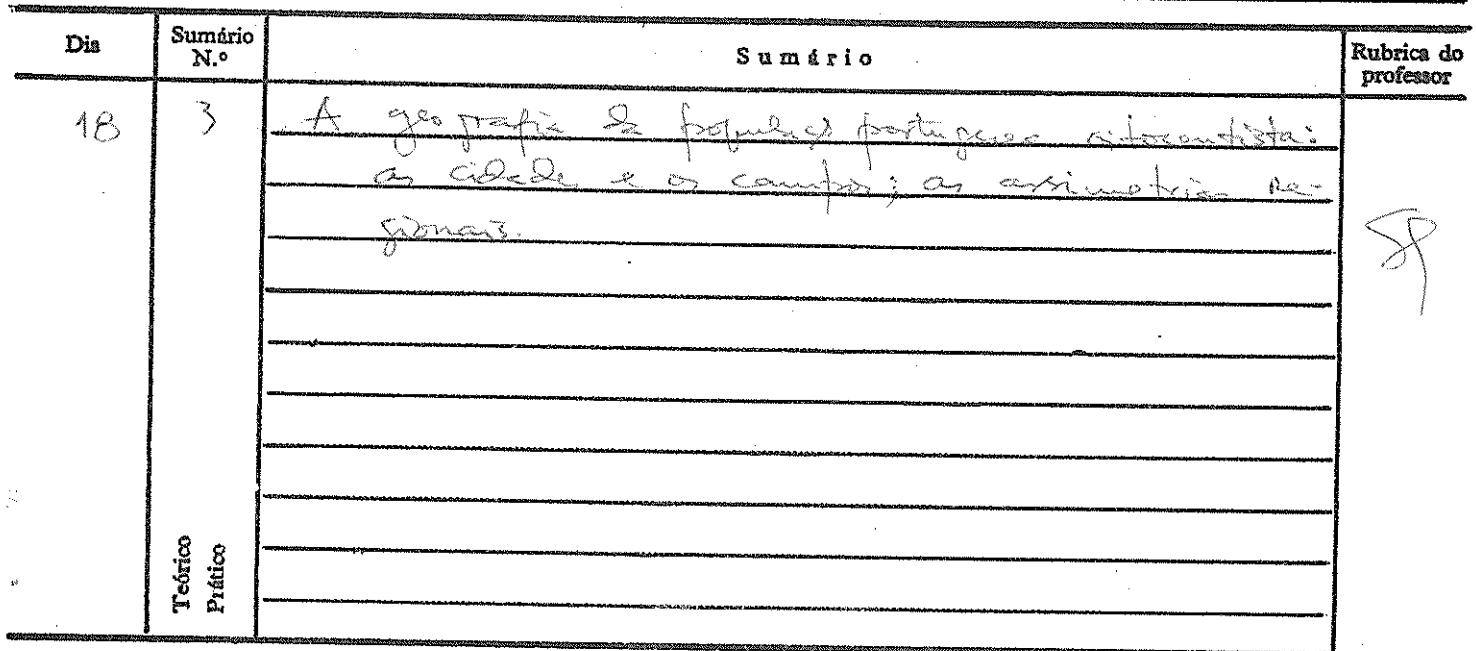 Dia Sumário N.º Sumário Rubrica do professor
18 3 A geografia da população portuguesa oitocentista:
as cidades e os campos; as assimetrias re-
gionais.
Teórico
Prático